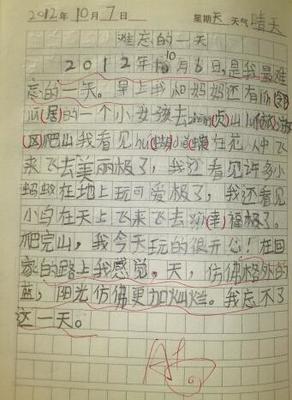 2012年10月7日 星期天 天气晴天
难忘的一天
2012年10月6日,是我最难
忘的一天。早上我和妈妈还有
(居)的一个小女孩去 山
区爬山我看见 花丛中飞
来飞去美丽极了,我还看见许多小
蚂蚁在地上玩可爱极了,我还看见
小鸟在天上飞来飞去 (幸)福极了。
爬完山,我今天玩的很开心!在回
家的路上我感觉,天,仿佛格外的
蓝,阳光仿佛更加灿烂。我忘不了
这一天。